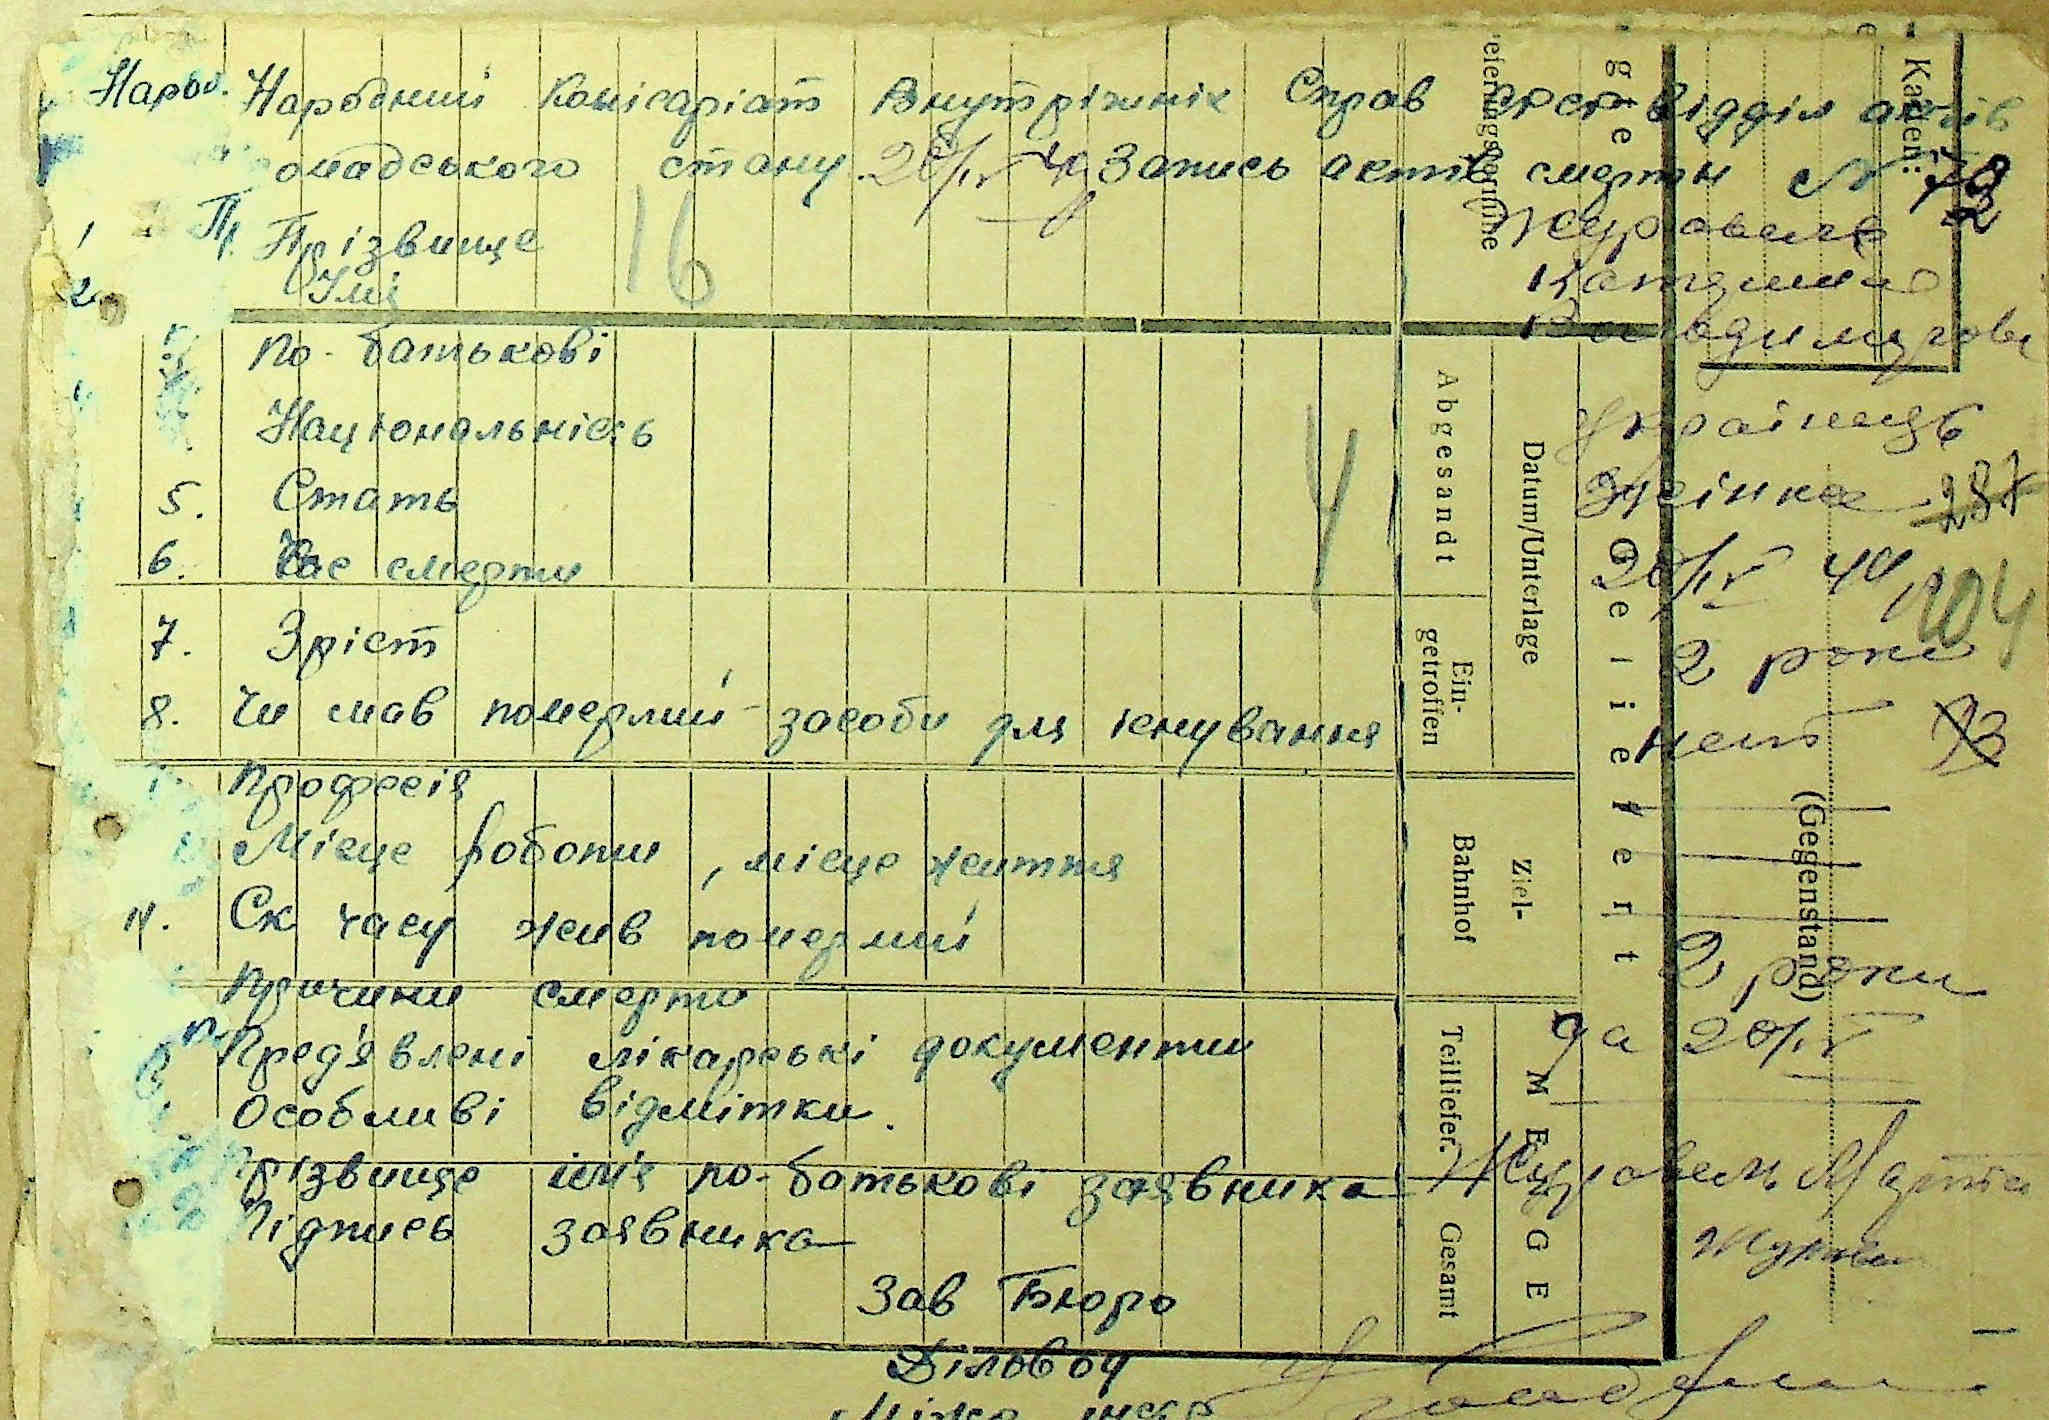 Народ. Народний Комісаріат Внутрішніх Справ УРСР Відділ актів
омадського стану 20/IV 44 Запись актів смерти № 72
1 Пр. Прізвище 16 Журавель
2. Імя Катерина
По-батькові Володимирови
Національність Українець
5. Стать 4 жінка 287
6. Час смерти 20/IV 44 104
7. Зріст 2 роки
8. Чи мав померлий засоби для існування нет 73
Професія
Місце роботи, місце життя
11. Ск часу жив померлий 2 роки
Причини смерти
Пред'явлені лікарські документи да 20/IV
Особливі відмітки.
Прізвище імя по-батькові заявника Журавель Марта
Підпись заявника
Зав Бюро
Діловод
eierungstermine
Karten:
Abgesandt
Ein-
getroffen
Datum/Unterlage
Ziel-
Bahnhof
Teilliefer.
Gesamt
MENGE
Geliefert
(Gegenstand)